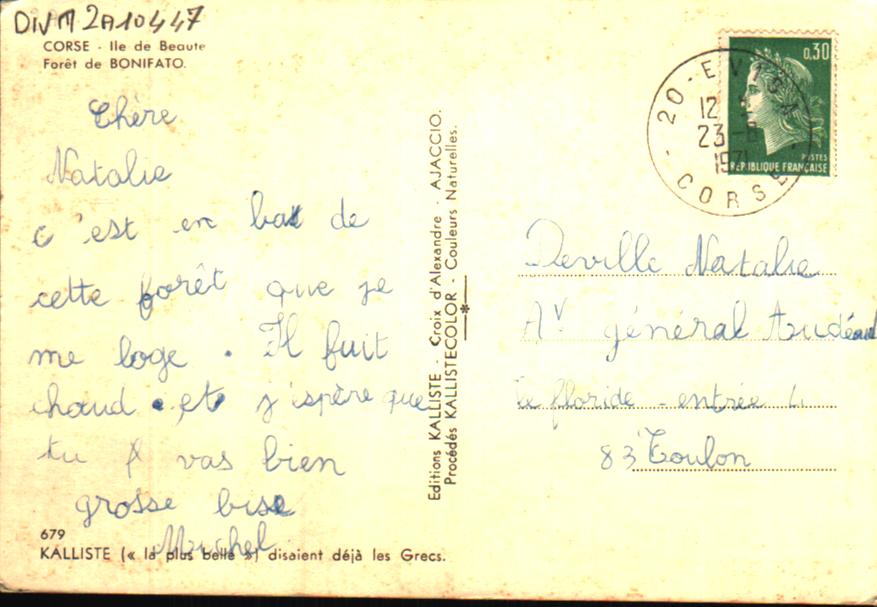 DIVM2A10447
CORSE - Ile de Beaute
Forêt de BONIFATO.
Chère
Natalie
c'est en bas de
cette forêt que je
me loge. Il fait
chaud et j'espère que
tu vas bien
grosse bise
Michel
679
KALLISTE (« la plus belle ») disaient déjà les Grecs.
Editions KALLISTE - Croix d'Alexandre - AJACCIO.
Procédés KALLISTECOLOR - Couleurs Naturelles.
0,30
POSTES
REPUBLIQUE FRANÇAISE
20 - EVISA
12
23-8
1971
CORSE
Deville Natalie
Av général Audéoud
le floride - entrée L
83 Toulon